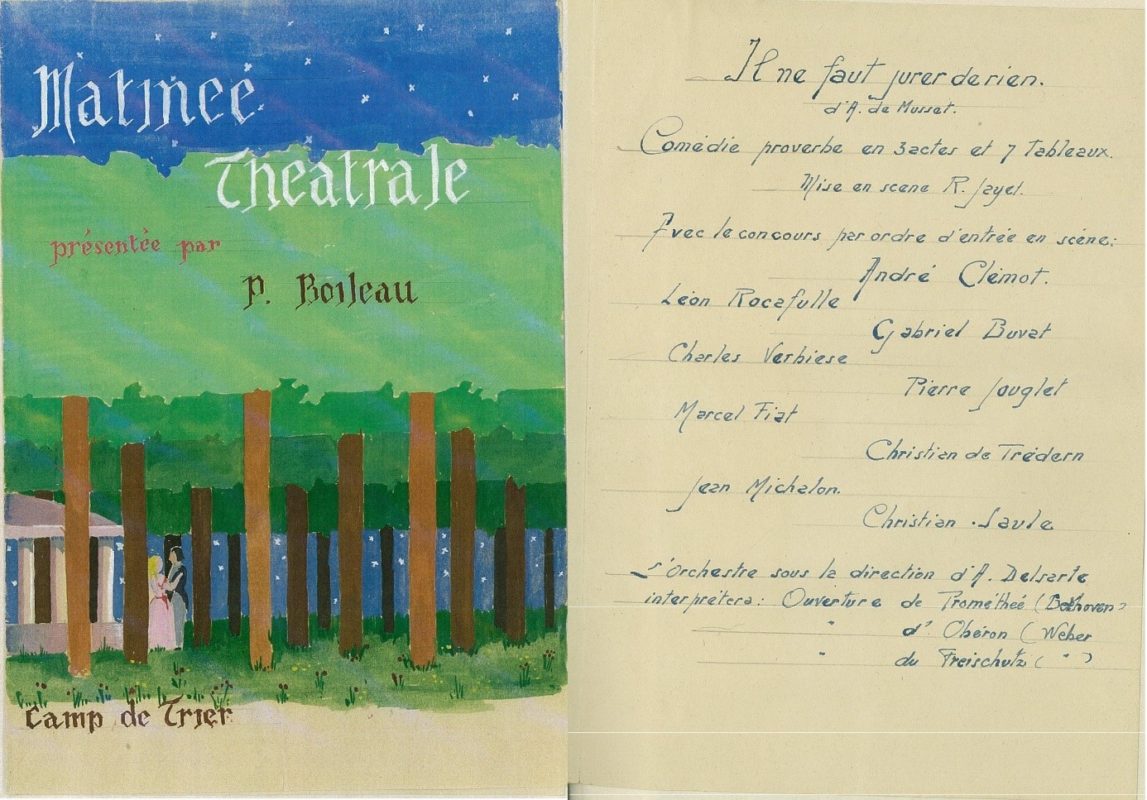 Matinée
Théatrale
présentée par
P. Boileau
Camp de Trier
Il ne faut jurer de rien.
d'A. de Musset.
Comédie proverbe en 3 actes et 7 Tableaux.
Mise en scène R. Jayet.
Avec le concours par ordre d'entrée en scène:
André Clémot.
Léon Rocafulle
Gabriel Buvat
Charles Verhiese
Pierre Jouglet
Marcel Fiat
Christian de Trédern
Jean Michalon.
Christian Saule
L'Orchestre sous la direction d'A. Delsarte
interprétera: Ouverture de Prométhée (Bethoven)
" d' Obéron (Weber
" du Freischutz ( " )